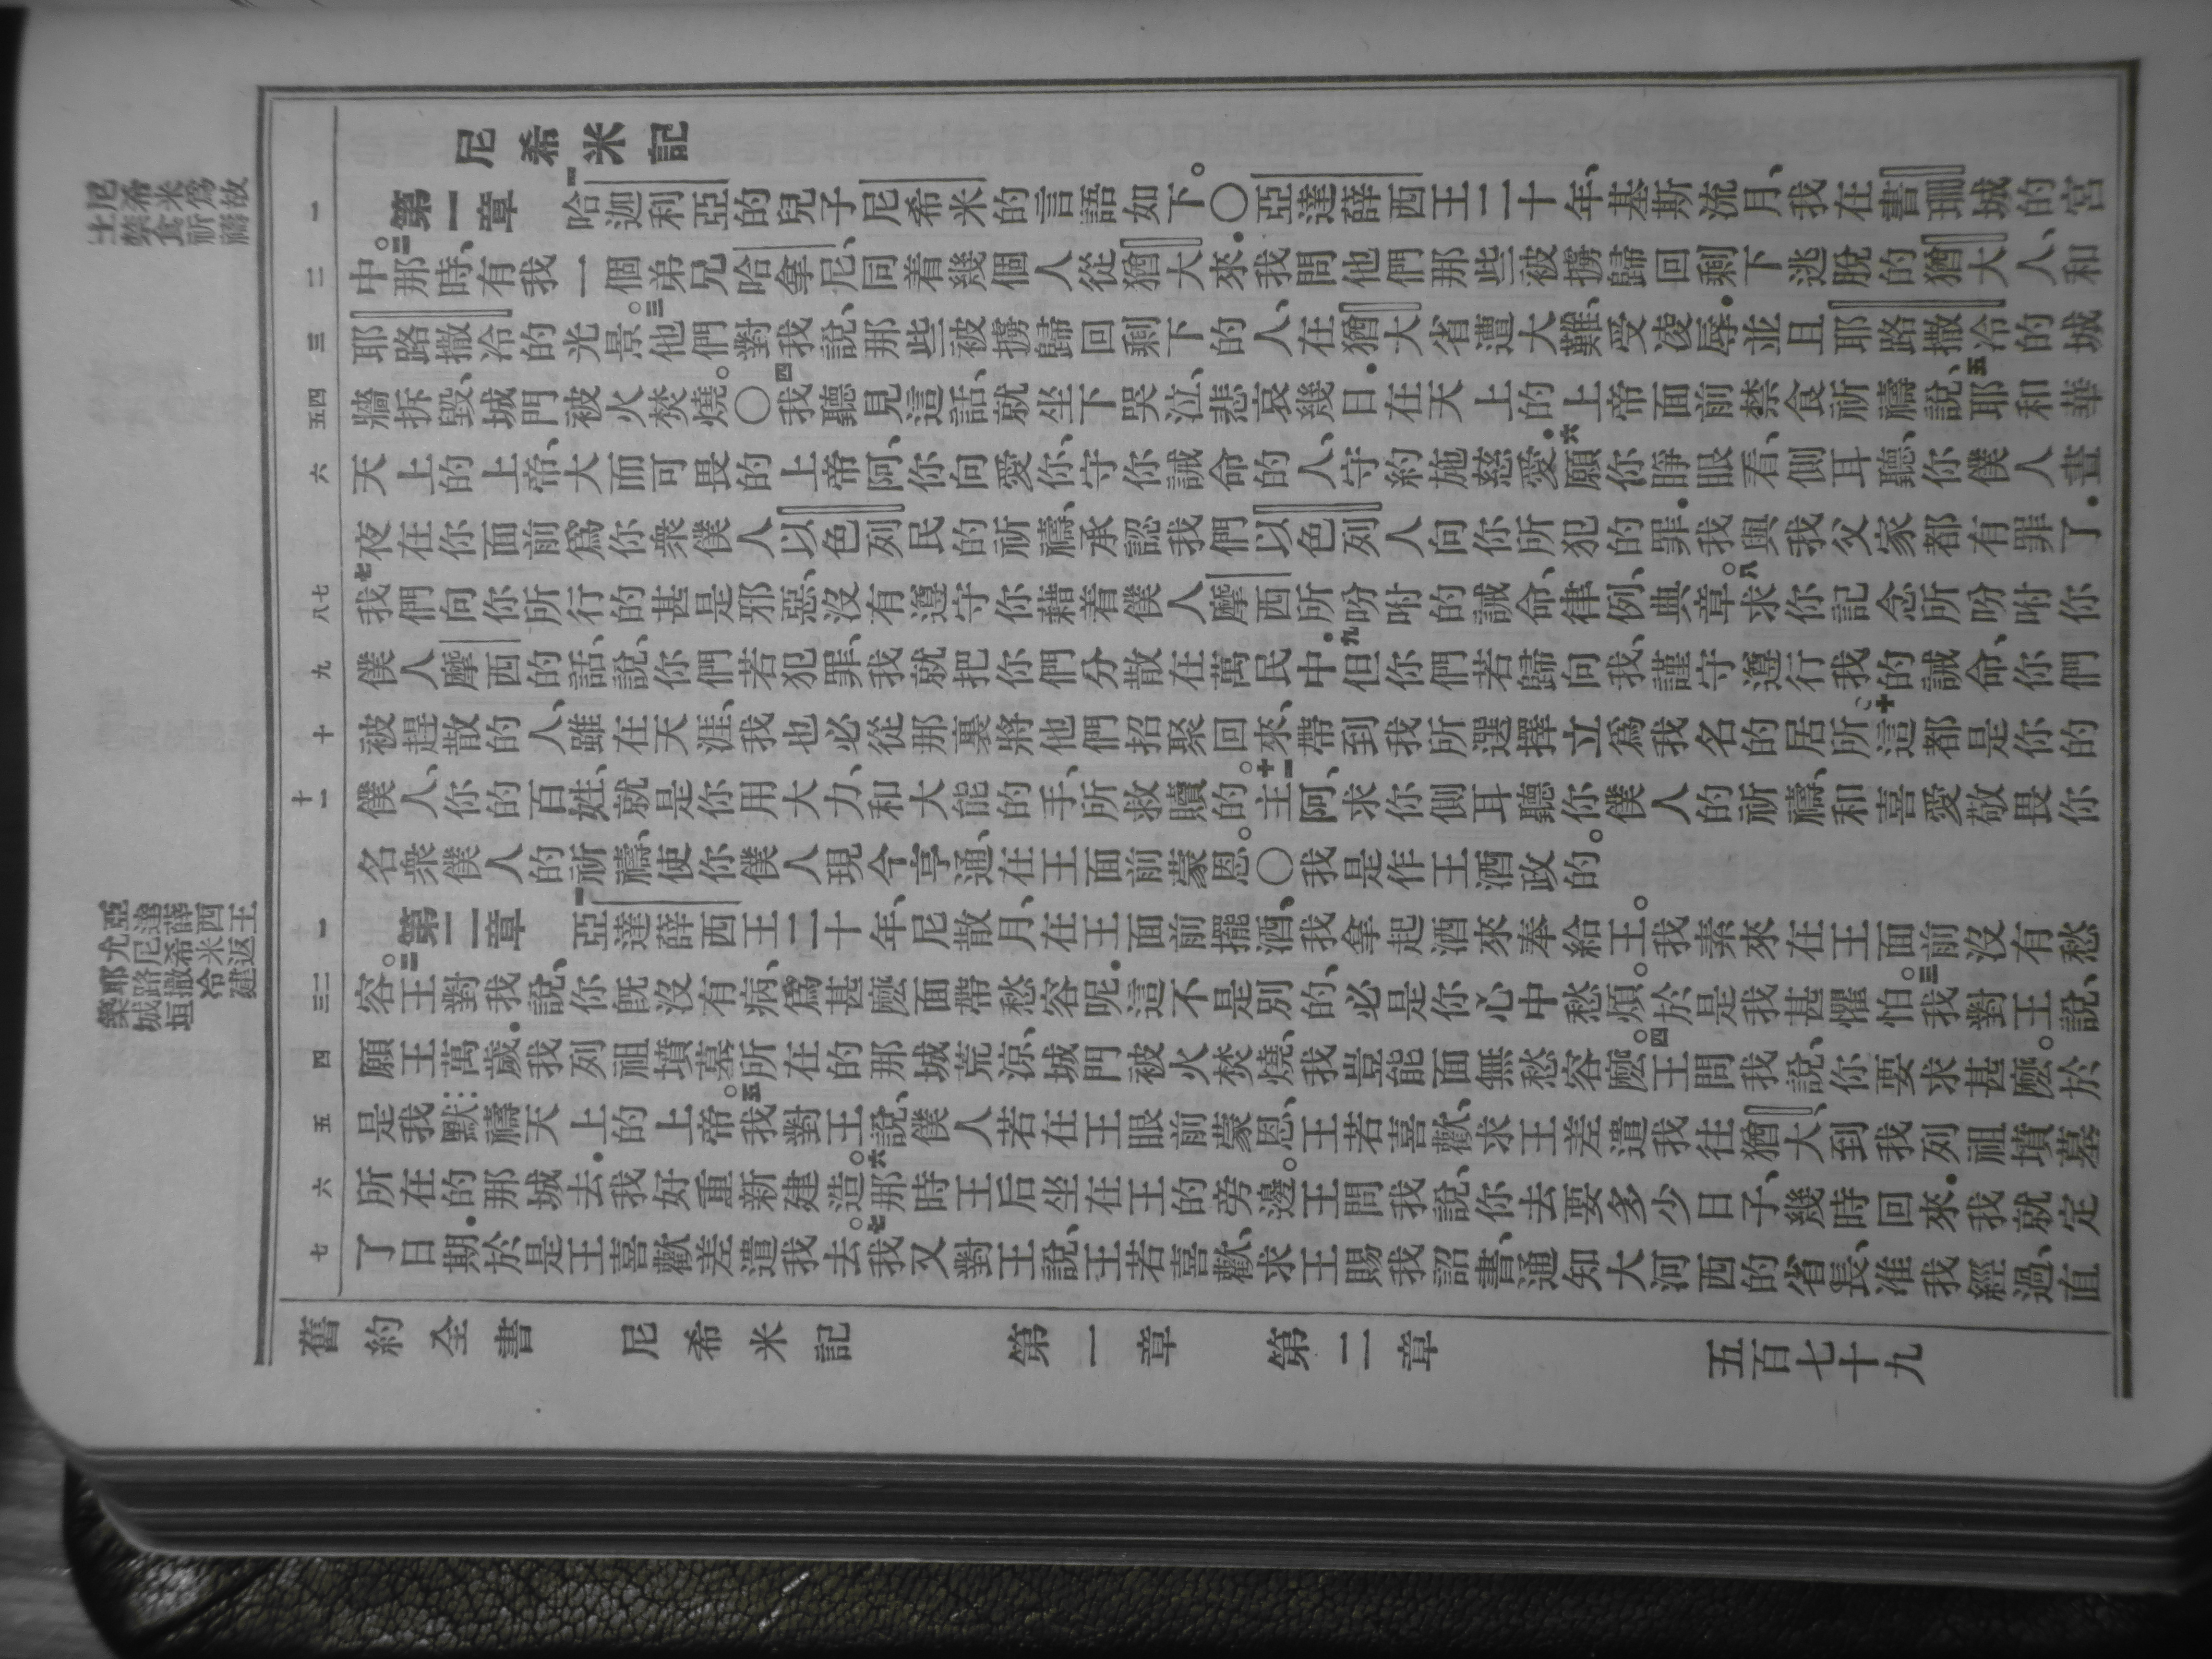 尼希米記
尼希米爲故
土禁食祈禱
一
第一章 一哈迦利亞的兒子尼希米的言語如下。〇亞達薛西王二十年、基斯流月、我在書珊城的宮
二
中。二那時、有我一個弟兄哈拿尼、同着幾個人從猶大來．我問他們那些被擄歸回剩下逃脫的猶大人、和
三
耶路撒冷的光景。三他們對我說、那些被擄歸回剩下的人、在猶大省遭大難、受凌辱．並且耶路撒冷的城
四五
牆拆毀、城門被火焚燒。〇四我聽見這話、就坐下哭泣、悲哀幾日．在天上的上帝面前禁食祈禱說、五耶和華
六
天上的上帝、大而可畏的上帝阿、你向愛你、守你誡命的人、守約施慈愛．六願你睜眼看、側耳聽、你僕人晝
夜在你面前爲你衆僕人以色列民的祈禱、承認我們以色列人向你所犯的罪．我與我父家都有罪了．
七八
七我們向你所行的甚是邪惡、沒有遵守你藉着僕人摩西所吩咐的誡命、律例、典章。八求你記念所吩咐你
九
僕人摩西的話、說、你們若犯罪、我就把你們分散在萬民中．九但你們若歸向我、謹守遵行我的誡命、你們
十
被趕散的人、雖在天涯、我也必從那裏將他們招聚回來、帶到我所選擇立爲我名的居所。十這都是你的
十一
僕人、你的百姓、就是你用大力、和大能的手、所救贖的。十一主阿、求你側耳聽你僕人的祈禱、和喜愛敬畏你
名衆僕人的祈禱、使你僕人現今亨通、在王面前蒙恩。〇我是作王酒政的。
亞達薛西王
允尼希米返
耶路撒冷建
築城垣
一
第二章 一亞達薛西王二十年、尼散月、在王面前擺酒、我拿起酒來奉給王。我素來在王面前沒有愁
二三
容。二王對我說、你既沒有病、爲甚麼面帶愁容呢．這不是別的、必是你心中愁煩。於是我甚懼怕。三我對王說、
四
願王萬歲．我列祖墳墓所在的那城荒涼、城門被火焚燒、我豈能面無愁容麼。四王問我說、你要求甚麼。於
五
是我默禱天上的上帝。五我對王說、僕人若在王眼前蒙恩、王若喜歡、求王差遣我往猶大、到我列祖墳墓
六
所在的那城去．我好重新建造。六那時王后坐在王的旁邊。王問我說、你去要多少日子、幾時回來．我就定
七
了日期．於是王喜歡差遣我去。七我又對王說、王若喜歡、求王賜我詔書、通知大河西的省長、准我經過、直
舊約全書 尼希米記 第一章 第二章 五百七十九